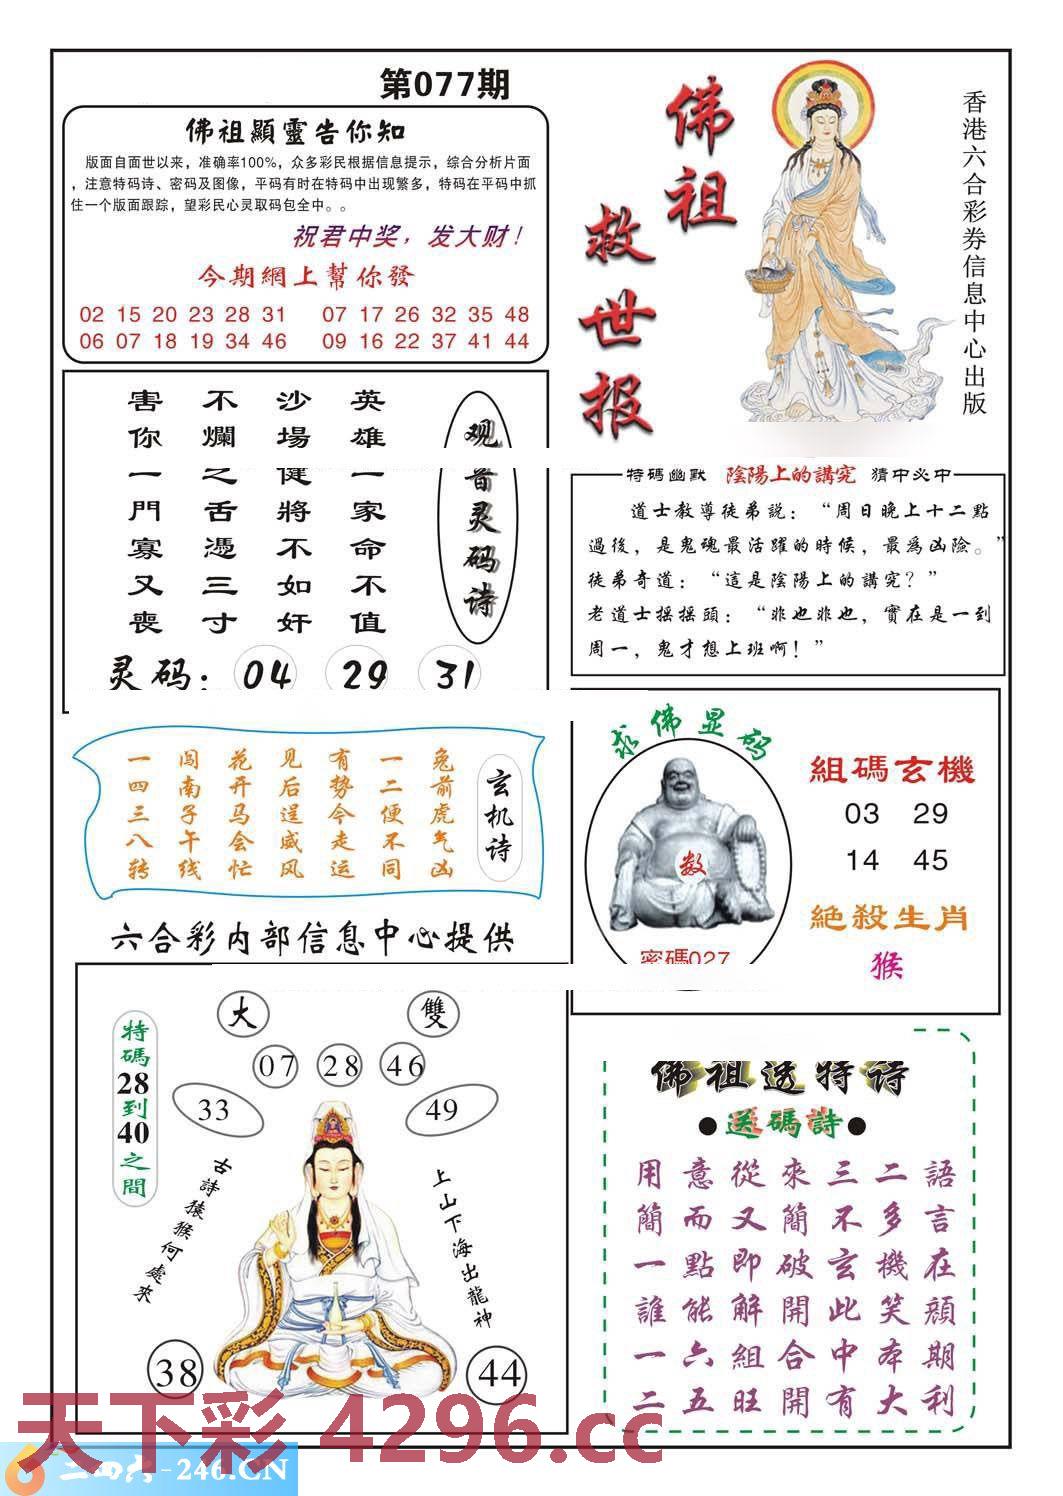 第077期
佛祖顯靈告你知
版面自面世以来，准确率100%，众多彩民根据信息提示，综合分析片面
，注意特码诗、密码及图像，平码有时在特码中出现繁多，特码在平码中抓
住一个版面跟踪，望彩民心灵取码包全中。。
祝君中奖，发大财！
今期網上幫你發
02 15 20 23 28 31 07 17 26 32 35 48
06 07 18 19 34 46 09 16 22 37 41 44
佛祖
救世报
香港六合彩券信息中心出版
观音灵码诗
英雄一家命不值
沙場健將不如奸
不爛之舌憑三寸
害你一門寡又喪
灵码：04 29 31
特碼幽默 陰陽上的講究 猜中必中
道士教導徒弟説：“周日晚上十二點
過後，是鬼魂最活躍的時候，最爲凶險。”
徒弟奇道：“這是陰陽上的講究？”
老道士摇摇頭：“非也非也，實在是一到
周一，鬼才想上班啊！”
玄机诗
兔前虎气凶
一二便不同
有势今走运
见后逞威风
花开马会忙
闯南子午线
一四三八转
六合彩内部信息中心提供
求佛显码
数
密碼027
組碼玄機
03 29
14 45
絕殺生肖
猴
特碼28到40之間
大 雙
07 28 46
33 49
古詩猿猴何處來
上山下海出龍神
38 44
佛祖透特诗
●送碼詩●
用意從來三二語
簡而又簡不多言
一點即破玄機在
誰能解開此笑顔
一六組合中本期
二五旺開有大利
天下彩 4296.cc
二四六-246.CN